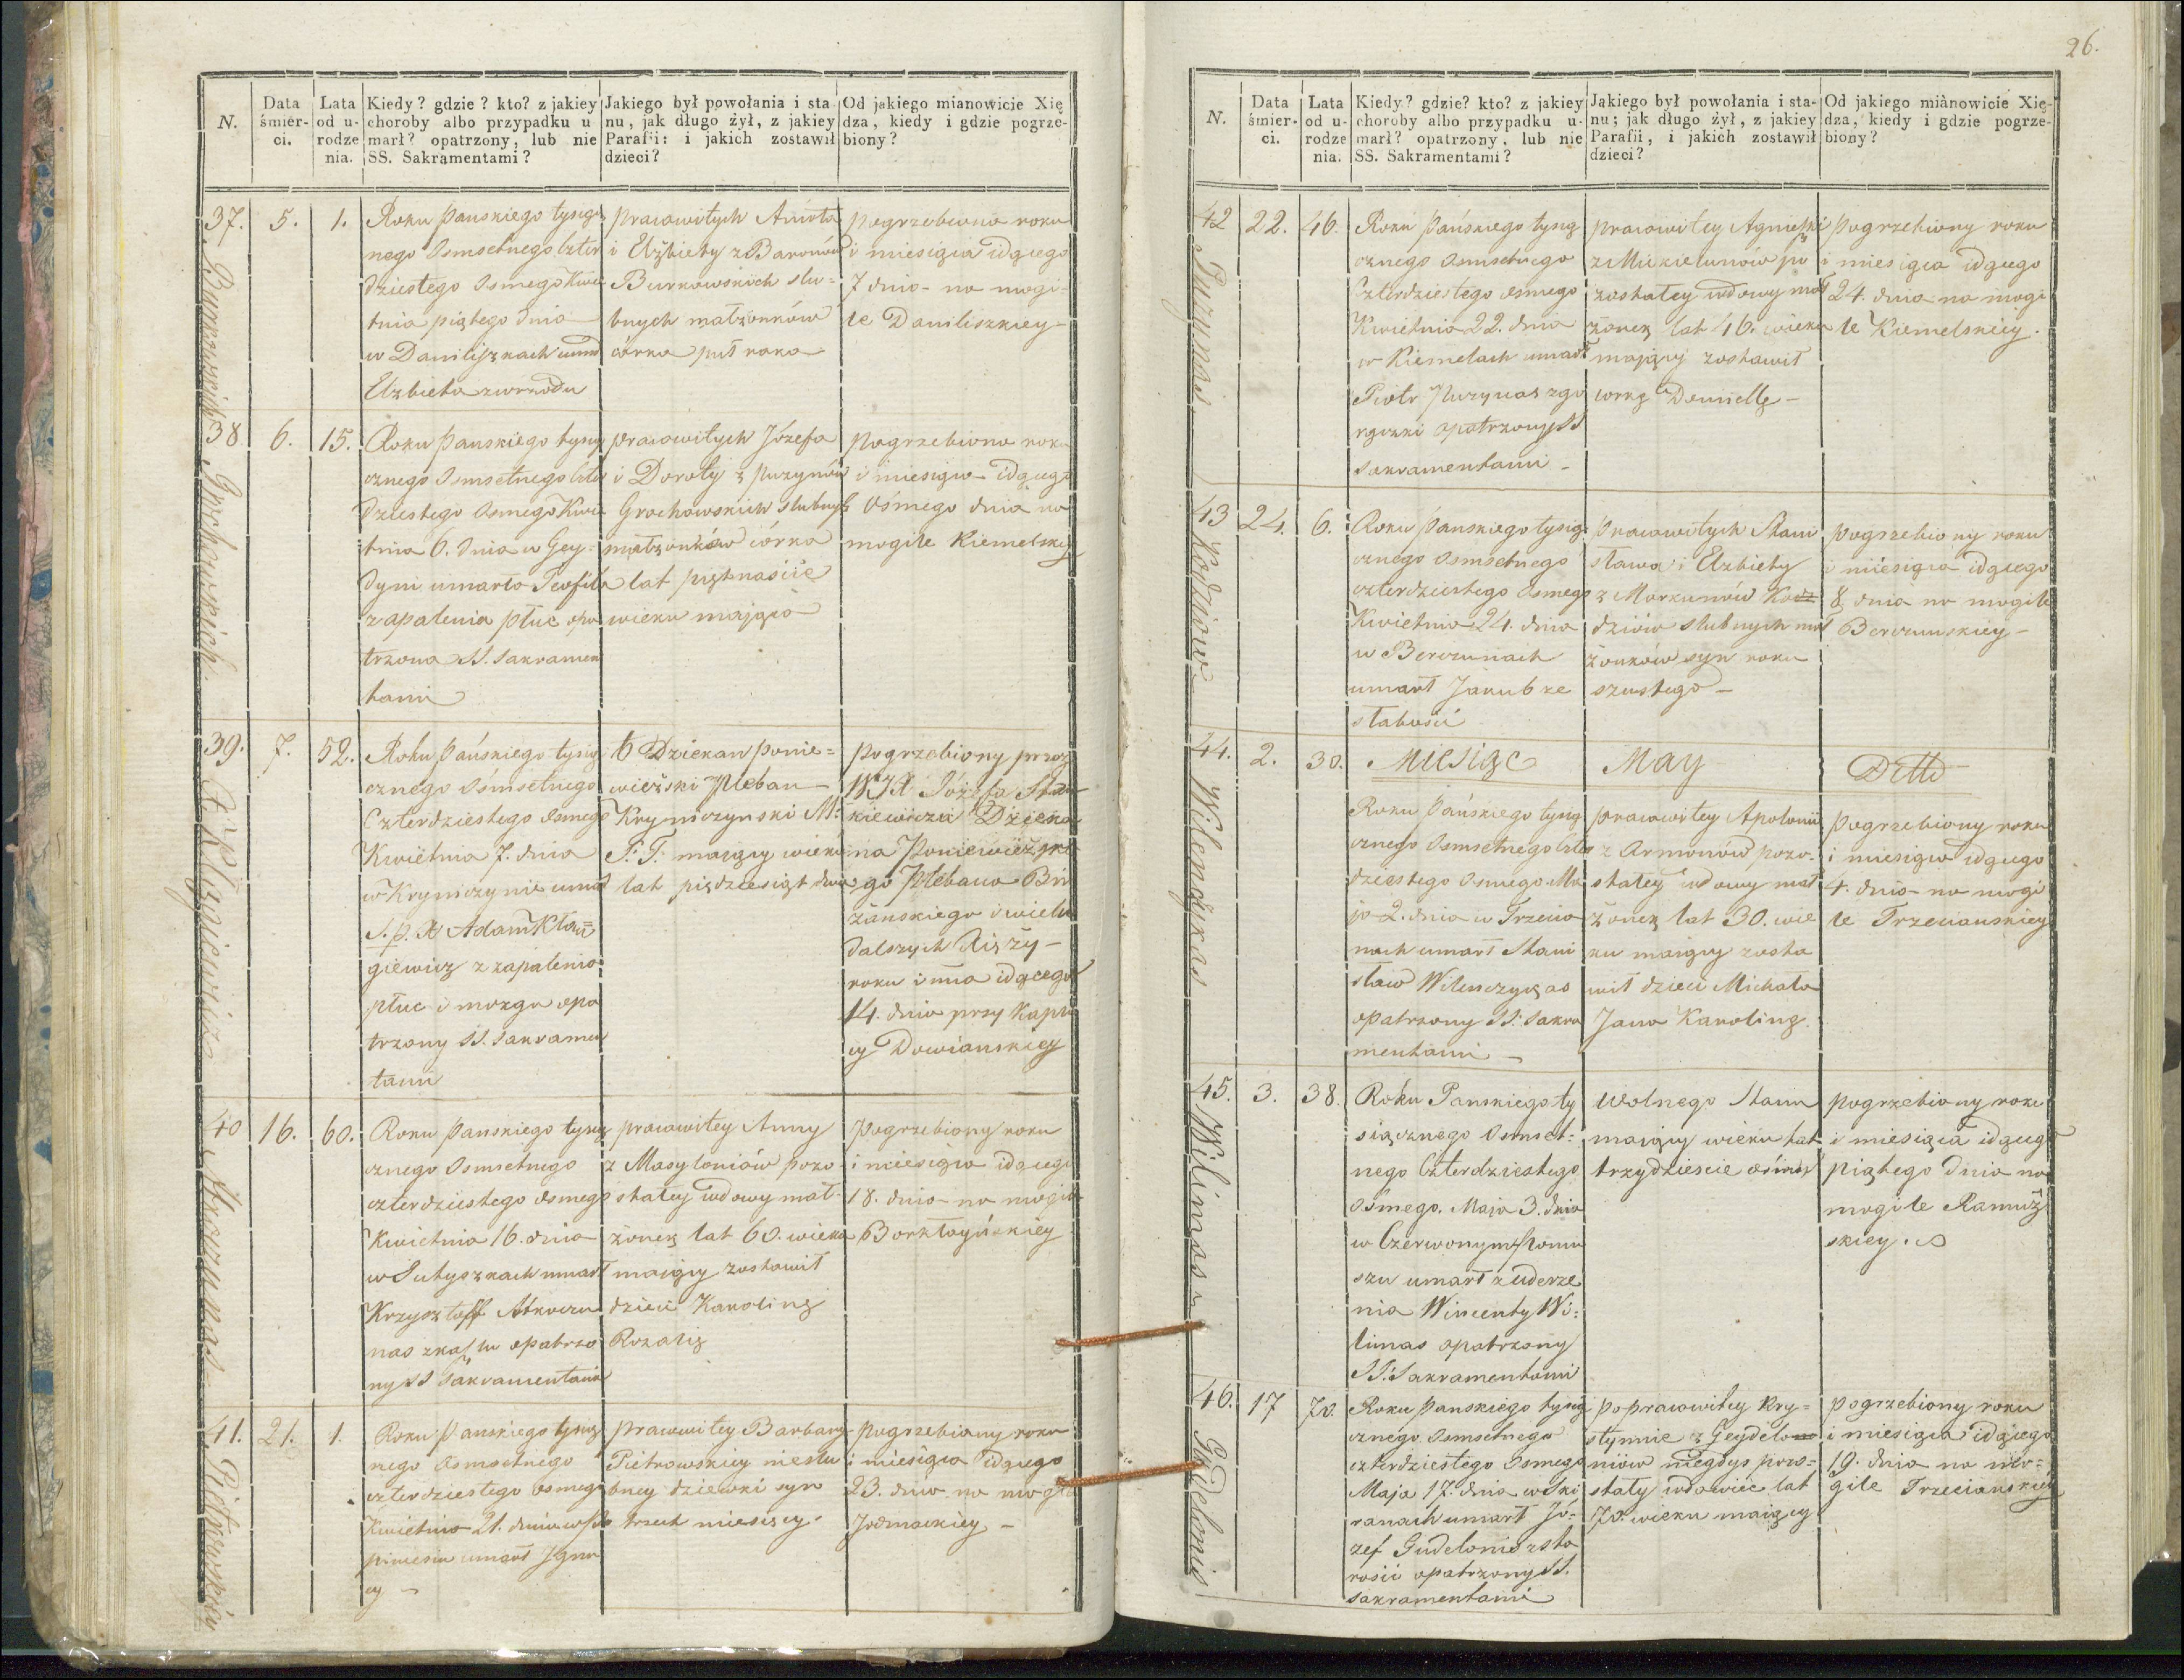 N.
Data śmier-ci.
Lata od u-rodze nia.
Kiedy? gdzie? kto? z jakiey
choroby albo przypadku u
marł? opatrzony, lub nie
SS. Sakramentami?
Jakiego był powołania i sta
nu, jak długo żył, z jakiey
Parafii: i jakich zostawił
dzieci?
Od jakiego mianowicie Xię
dza, kiedy i gdzie pogrze-
biony?
37.
5.
1.
Roku Panskiego tysią
nego Osmsetnego Czter
dziestego Osmego Kwie
tnia piątego dnia
w Daniliszkach umar
Elzbieta z wrzodu
pracowitych
i Elżbiety z Baronów
Burkowskich slu=
bnych małżonków
córka puł roka
pogrzebiona roku
i miesiąca idącego
7 dnia na mogi-
le Daniliszkiey
Burkowskich
38
6.
15.
Roku Panskiego tysią
cznego Osmsetnego Czter
dziestego Osmego Kwie
tnia 6. dnia w Gey-
dyni umarła Teofila
zapalenia płuc opa
trzona SS. Sakramen
tami
pracowitych Józefa
i Doroty z Puzynów
Grochowskich slubnych
małżonków córka
lat piętnaście
wieku mająca
pogrzebiona roku
i miesiąca idącego
Osmego dnia na
mogile Kiemelskiey
Grochowskich
39.
7.
52.
Roku Pańskiego tysią
cznego Osmsetnego
Czterdziestego Osmego
Kwietnia 7. dnia
w Kryniczynie umar
S. p. X Adam Kłą=
giewicz z zapalenia
płuc i mozgu opa
trzony SS. Sakramen
tami
b Dziekan Ponie=
wiezski Pleban
Kryniczynski M:
S: T: maiący wieku
lat pięcdziesiąt dwa
pogrzebiony przez
WJX Józefa
kiewicza Dzieka
na Poniewiezski
go Plebana Bir
żanskiego i wielu
dalszych Xięży-
roku i mca idącego
14. dnia przy Kapli
cy Dowianskiey
X. Kłągiewicza
40
16.
60.
Roku Panskiego tysią
cznego Osmsetnego
czterdziestego Osmego
Kwietnia 16. dnia
w Sutyszkach umarł
Krzysztoff Mroczu
nas zkaszlu opatrzo
ny SS Sakramentami
pracowitey Anny
z Masyloniów pozo
stałey wdowy mał-
żonek lat 60. wieku
maiący zostawił
dzieci Karolinę
Rozalię
pogrzebiony roku
i miesiąca idącego
18. dnia na mogile
Borkłoyńskiey
Mroczunas
41.
21.
1.
Roku Panskiego tysiącz
nego Osmsetnego
czterdziestego Osmego
Kwietnia 21. dnia w
umarł Igna
cy -
pracowitey Barbary
Pietrowskiey nieslu
bney dziewki syn
trzech miesięcy.
pogrzebiony roku
i miesiąca idącego
23. dnia na mogile
-
Pietrowskiey
26.
N.
Data śmier-ci.
Lata od u-rodze nia.
Kiedy? gdzie? kto? z jakiey
choroby albo przypadku u-
marł? opatrzony, lub nie
SS. Sakramentami?
Jakiego był powołania i sta-
nu; jak długo żył, z jakiey
Parafii, i jakich zostawił
dzieci?
Od jakiego mianowicie Xię-
dza, kiedy i gdzie pogrze-
biony?
42
22.
46.
Roku Pańskiego tysią
cznego Osmsetnego
Czterdziestego Osmego
Kwietnia 22. dnia
w Kiemelach umarł
Piotr Puzynas zgo
rączki opatrzony SS
Sakramentami -
pracowitey Agnieszki
z Mickielunów po
zostałey wdowy mał
żonek lat 46. wieku
mający zostawił
corkę Domicellę -
pogrzebiony roku
i miesiąca idącego
24. dnia na mogi
le Kiemelskiey.
Puzynas
43
24.
6.
Roku Panskiego tysią
cznego Osmsetnego
czterdziestego Osmego
Kwietnia 24. dnia
w Berczunach
umarł Jakub ze
słabości
Pracowitych Stani
sława i Elzbiety
z Markunów Ko
dziów slubnych mał
żonków syn roku
szustego -
pogrzebiony roku
i miesiąca idącego
8 dnia na mogile
Berczunskiey -
Kodziow
44.
2.
30.
Miesiąc May Ditto
Roku Pańskiego tysią
cznego Osmsetnego Czter
dziestego Osmego Ma
ja 2. dnia w Trzecia
nach umarł Stani
sław Wilenczykas
opatrzony SS: Sakra
mentami -
pracowitey Apolonii
z Armonów pozo-
stałey wdowy mał
żonek lat 30. wie
ku maiący zosta
wił dzieci Michała
Jana Karolinę.
pogrzebiony roku
i miesiąca idącego
4. dnia na mogi
le Trzecianskiey
Wilenczykas
45.
3.
38.
Roku Panskiego ty
siącznego Osmset=
nego Czterdziestego
Osmego. Maja 3. dnia
w Czerwonym
szu umarł z uderze
nia Wincenty Wi=
limas opatrzony
SS: Sakramentami
Wolnego Stanu
maiący wieku lat
trzydzieście osim
pogrzebiony roku
i miesiąca idącego
piątego dnia na
mogile Ramuż
skiey.
Wilimas
46.
17
70.
Roku Panskiego tysią
cznego Osmsetnego
czterdziestego Osmego
Maja 17. dnia w Ski
ranach umarł Jó=
zef Gudelonis zsta
rości opatrzony SS.
Sakramentami
po pracowitey Kry=
stynnie z Geydelo
niów niegdys pozo=
stały wdowiec lat
70. wieku maiący
pogrzebiony roku
i miesiąca idącego
19. dnia na mo=
gile Trzecianskiey
Gudelonis